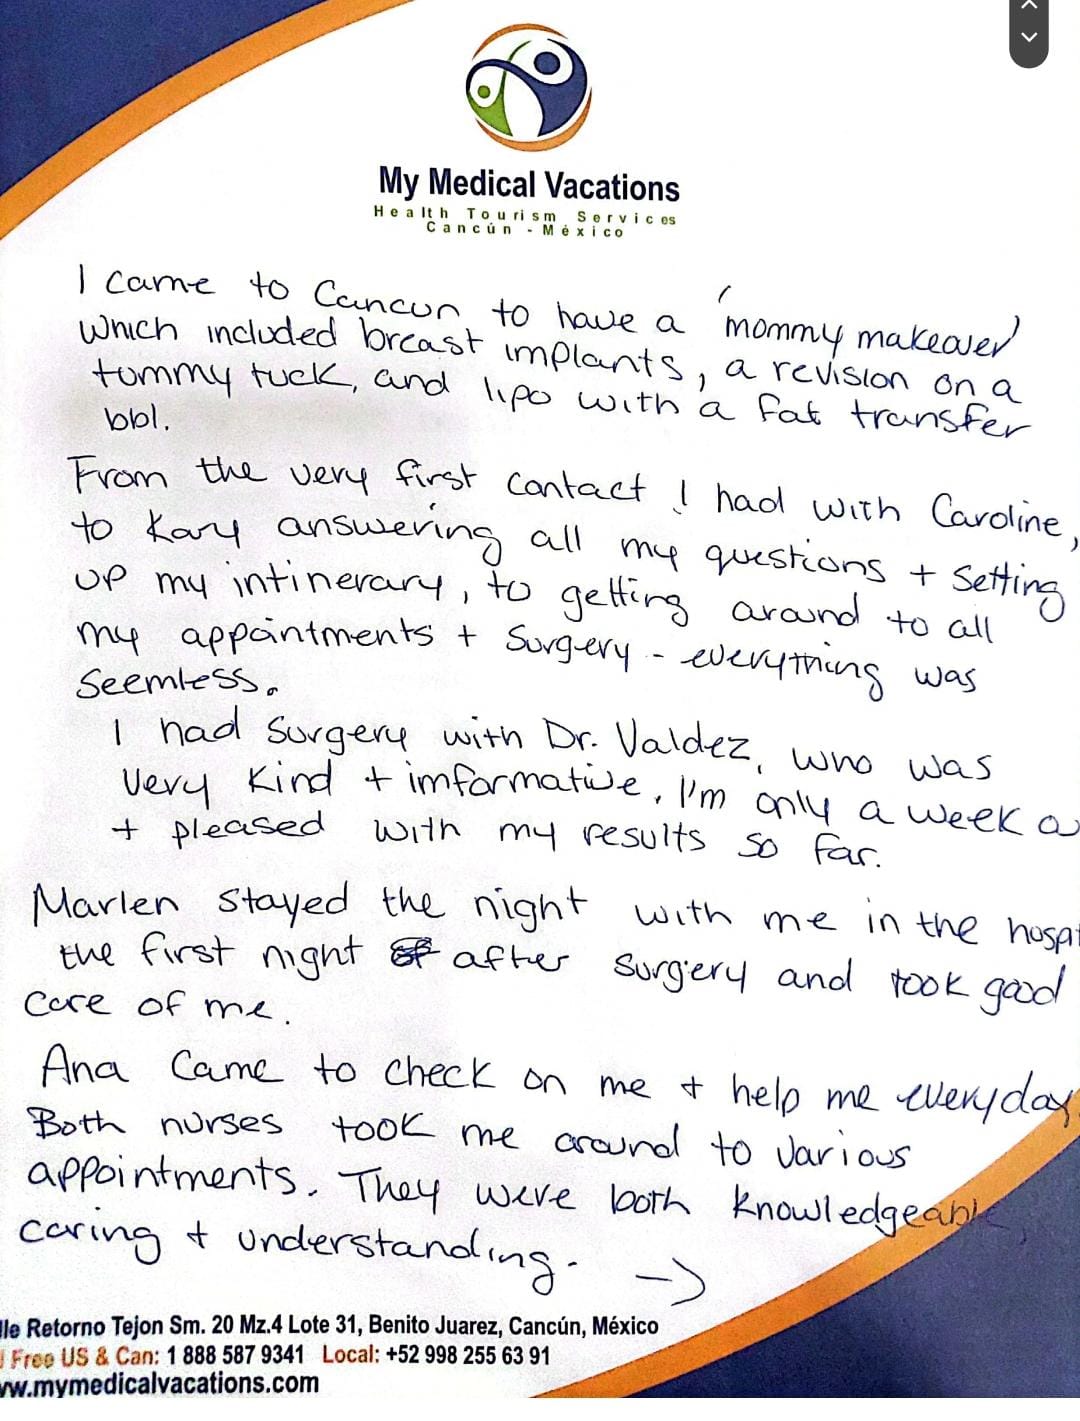 My Medical Vacations
Health Tourism Services
Cancún - México
I came to Cancun to have a 'mommy makeover'
which included breast implants, a revision on a
tummy tuck, and lipo with a fat transfer
bbl.
From the very first contact I had with Caroline,
to Kary answering all my questions + setting
up my intinerary, to getting around to all
my appointments + surgery - everything was
seemless.
I had surgery with Dr. Valdez, who was
very kind + imformative. I'm only a week
+ pleased with my results so far.
Marlen stayed the night with me in the hospit
the first night after surgery and took good
care of me.
Ana came to check on me + help me everyday
Both nurses took me around to various
appointments. They were both knowledgeable,
caring + understanding. ->
lle Retorno Tejon Sm. 20 Mz.4 Lote 31, Benito Juarez, Cancún, México
Free US & Can: 1 888 587 9341 Local: +52 998 255 63 91
ww.mymedicalvacations.com